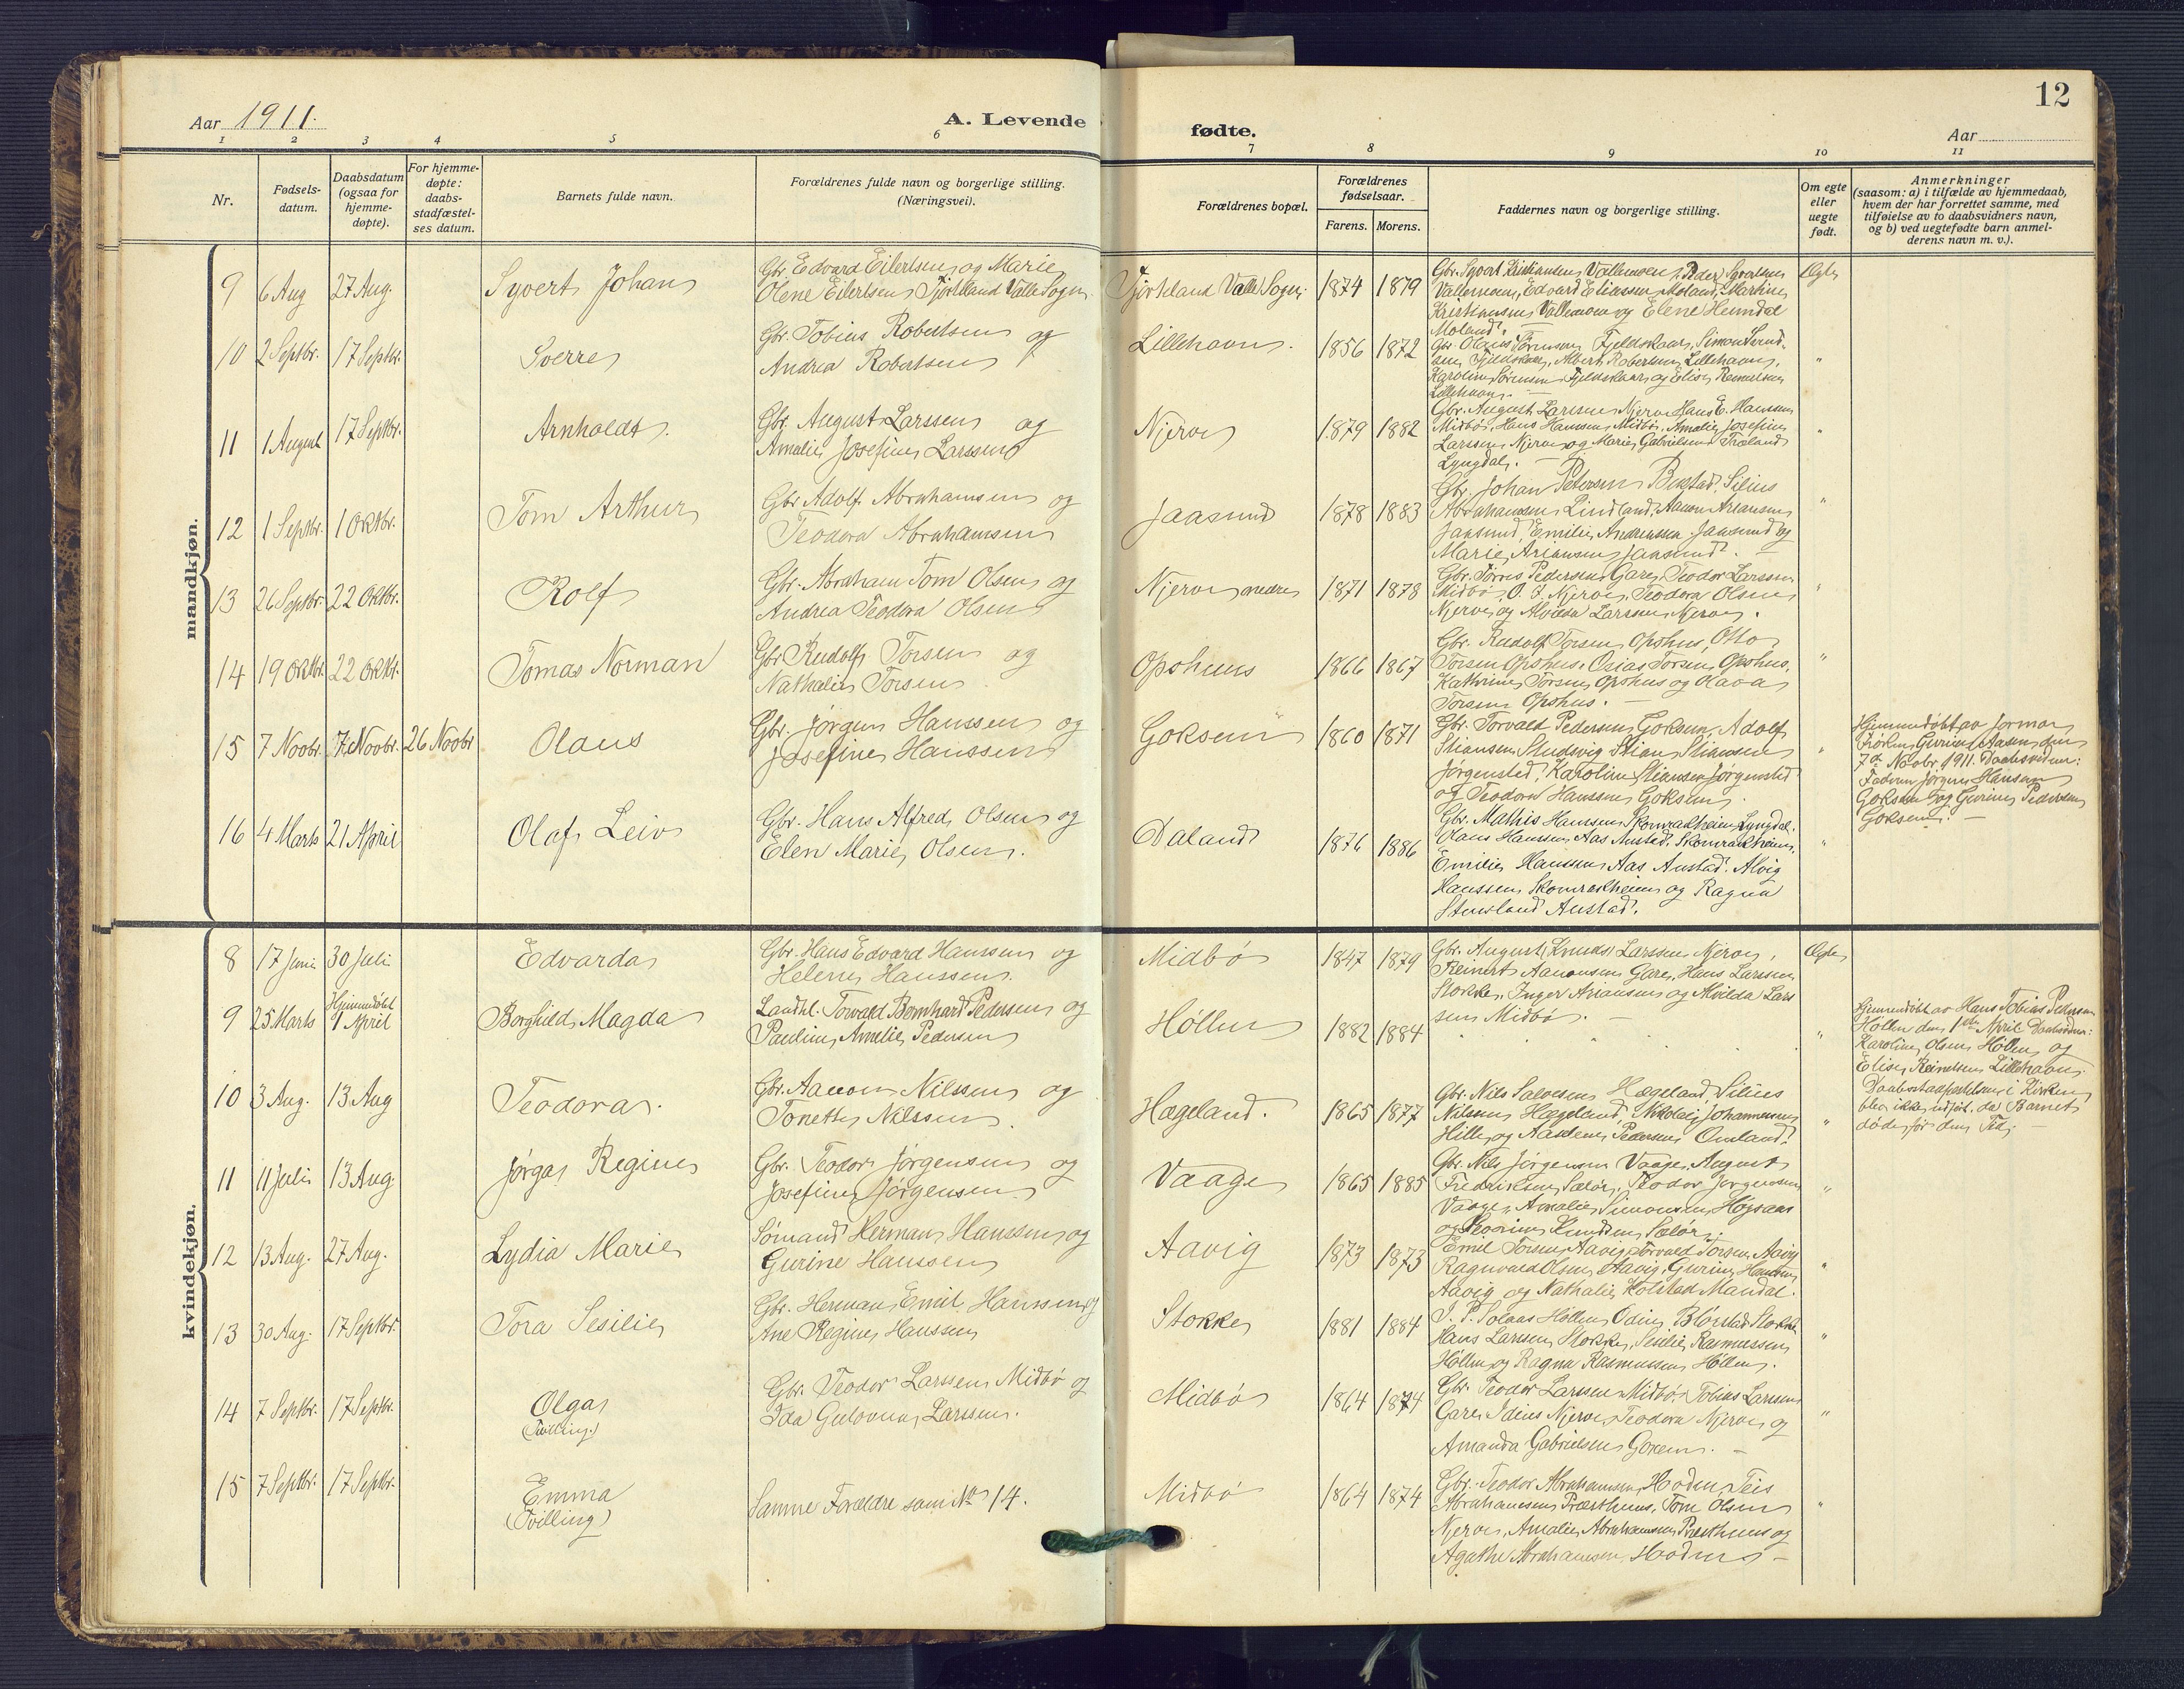 12
Aar 1911.
A. Levende
fødte.
Aar
1 2 3 4 5 6 7 8 9 10 11
Nr.
Fødsels-
datum.
Daabsdatum
(ogsaa for
hjemme-
døpte).
For hjemme-
døpte:
daabs-
stadfæstel-
ses datum.
Barnets fulde navn.
Forældrenes fulde navn og borgerlige stilling.
(Næringsvei).
Forældrenes bopæl.
Forældrenes
fødselsaar.
Farens. Morens.
Faddernes navn og borgerlige stilling.
Om egte
eller
uegte
født.
Anmerkninger
(saasom: a) i tilfælde av hjemmedaab,
hvem der har forrettet samme, med
tilføielse av to daabsvidners navn,
og b) ved uegtefødte barn anmel-
derens navn m. v.).
mandkjøn.
9 6 Aug 27 Aug. Syvert Johan
Gbr. Edvard Eilertsen og Marie
Olene Eilertsen Fjortland Valle Sogn
Valle Sogn 1874 1879
Gbr. Syvert Kristiansen Vallemoen, Peder Syvertsen
Vallemoen, Edvard Eliassen Moland, Martine
Kristiansen Vallemoen og Elene Heimdal
Moland.
Ægte
10 2 Septbr. 17 Septbr. Sverre
Gbr. Tobias Robertsen og
Andrea Robertsen
Lillehavn. 1856 1872
Fjeldskaar, Albert Robertsen Lillehavn,
Karoline Sørensen Fjeldskaar og Elise
Lillehavn.
"
11 1 August 17 Septbr. Arnholdt.
Gbr. August Larssen og
Amalie Josefine Larssen
Njerve 1879 1882
Gbr. August Larssen Njerve Hans E. Hanssen
Midbö, Hans Hanssen Midbö, Amalie Josefine
Larssen Njerve og Marie Gabrielsen
Lyngdal. —
"
12 1 Septbr. 1 Oktbr. Tom Arthur
Gbr Adolf Abrahamsen og
Teodora Abrahamsen
Jaasund 1878 1883
Gbr. Johan Petersen
Abrahamsen Lindland, Aanon Ariansen
Jaasund, Emilie Andreassen Jaasund og
Marie Ariansen Jaasund. —
"
13 26 Septbr. 22 Oktbr. Rolf
Gbr. Abraham Tom Olsen og
Andrea Teodora Olsen
Njerve nedre 1871 1878
Gbr. Pedersen Gare, Teodor Larssen
Midbö, Njerve, Teodora Olsen
Njerve og Alvilda Larssen Njerve.
"
14 19 Oktbr. 22 Oktbr. Tomas Norman
Gbr Rudolf Torsen og
Nathalie Torsen
Opshuus 1866 1867
Gbr. Rudolf Torsen Opshus, Otto
Torsen Opshus, Osias Torsen Opshus,
Kathrine Torsen Opshus og Olava
Torsen Opshus. —
"
15 7 Novbr. 7 Novbr. 26 Novbr Olaus
Gbr. Jørgen Hanssen og
Josefine Hanssen
Goksem 1860 1871
Gbr. Torvald Pedersen Goksem, Adolf
Stiansen, Stian Stiansen
Jørgensted, Karoline Stiansen Jørgensted
og Teodora Hanssen Goksem.
"
Hjemmedöbt av Jormor
Fröken Gurine Aasen den
7de Novbr. 1911. Daabsvidner:
Faderen Jørgen Hanssen
Goksem og Gurine Pedersen
Goksem. —
16 4 Marts 21 April Olaf Leiv
Gbr. Hans Alfred Olsen og
Elen Marie Olsen.
Daland 1876 1886
Gbr. Mathis Hanssen Skomrakheien Lyngdal.
Olaus Hanssen Aas Austad, Skomrakheien,
Emilie Hanssen Aas Austad. Alvig
Hanssen Skomrakheien og Ragna
Austad.
"
kvindekjøn.
8 17 Juni 30 Juli Edvarda
Gbr. Hans Edvard Hanssen og
Helene Hanssen.
Midbö 1847 1879
Gbr. August, Larssen Njerve,
Reinert Aanonsen Gare, Hans Larssen
Stokke, Inger Ariansen og Alvilda Lars
sen Midbö. —
Ægte
9 25 Marts Hjemmedöbt
1 April Borghild Magda
Landhl. Torvald Bernhard Pedersen og
Pauline Amalie Pedersen
Höllen 1882 1884
"
Hjemmedöbt av Hans Tobias Pedersen
Höllen den 1ste April Daabsvidner:
Karoline Olsen Höllen og
Elise Reinertsen Lillehavn.
Daabsstadfæstelsen i Kirken
blev ikke udfört, da Barnet
döde för den Tid. —
10 3 Aug. 13 Aug Teodora.
Gbr. Aanon Nilssen og
Tonette Nilssen.
Hægeland. 1865 1877
Gbr. Nils Salvesen Hægeland, Silius
Nilssen Hægeland, Nikolai Johannessen
Hille og Pedersen Omland.
"
11 11 Juli 13 Aug. Jørga Regine
Gbr. Teodor Jørgensen og
Josefine Jørgensen
Vaage 1865 1885
Gbr. Nils Jørgensen Vaage, August
Fredriksen Salör, Teodor Jørgensen
Vaage, Amalie Simonsen
og Knudsen Salör.
"
12 13 Aug. 27 Aug. Lydia Marie
Sømand Herman Hanssen og
Gurine Hanssen
Aavig 1873 1873
Emil Torsen Aavig, Torvald Torsen Aavig
Ragnvald Olsen Aavig, Gurine Hanssen
Aavig og Nathalie Holstad Mandal.
"
13 30 Aug. 17 Septbr. Tora Sesilie
Gbr. Herman Emil Hanssen og
Ane Regine Hanssen
Stokke 1881 1884
Solaas Höllen, Odin Stokke
Hans Larssen Stokke, Sesilie Rasmussen
Höllen og Ragna Rasmussen Höllen.
"
14 7 Septbr. 17 Septbr. Olga
(Tvilling)
Gbr. Teodor Larssen Midbö og
Ida Gulovna Larssen.
Midbö 1864 1874
Gbr. Teodor Larssen Midbö, Tobias Larssen
Gare, Njerve, Teodora Njerve og
Amanda Gabrielsen —
"
15 7 Septbr. 17 Septbr. Emma
(Tvilling)
Samme Forældre som № 14.
Midbö 1864 1874
Gbr. Teodor Abrahamsen Teis
Abrahamsen Præsthuus, Tom Olsen
Njerve, Amalie Abrahamsen Præsthuus og
Agathe Abrahamsen —
"